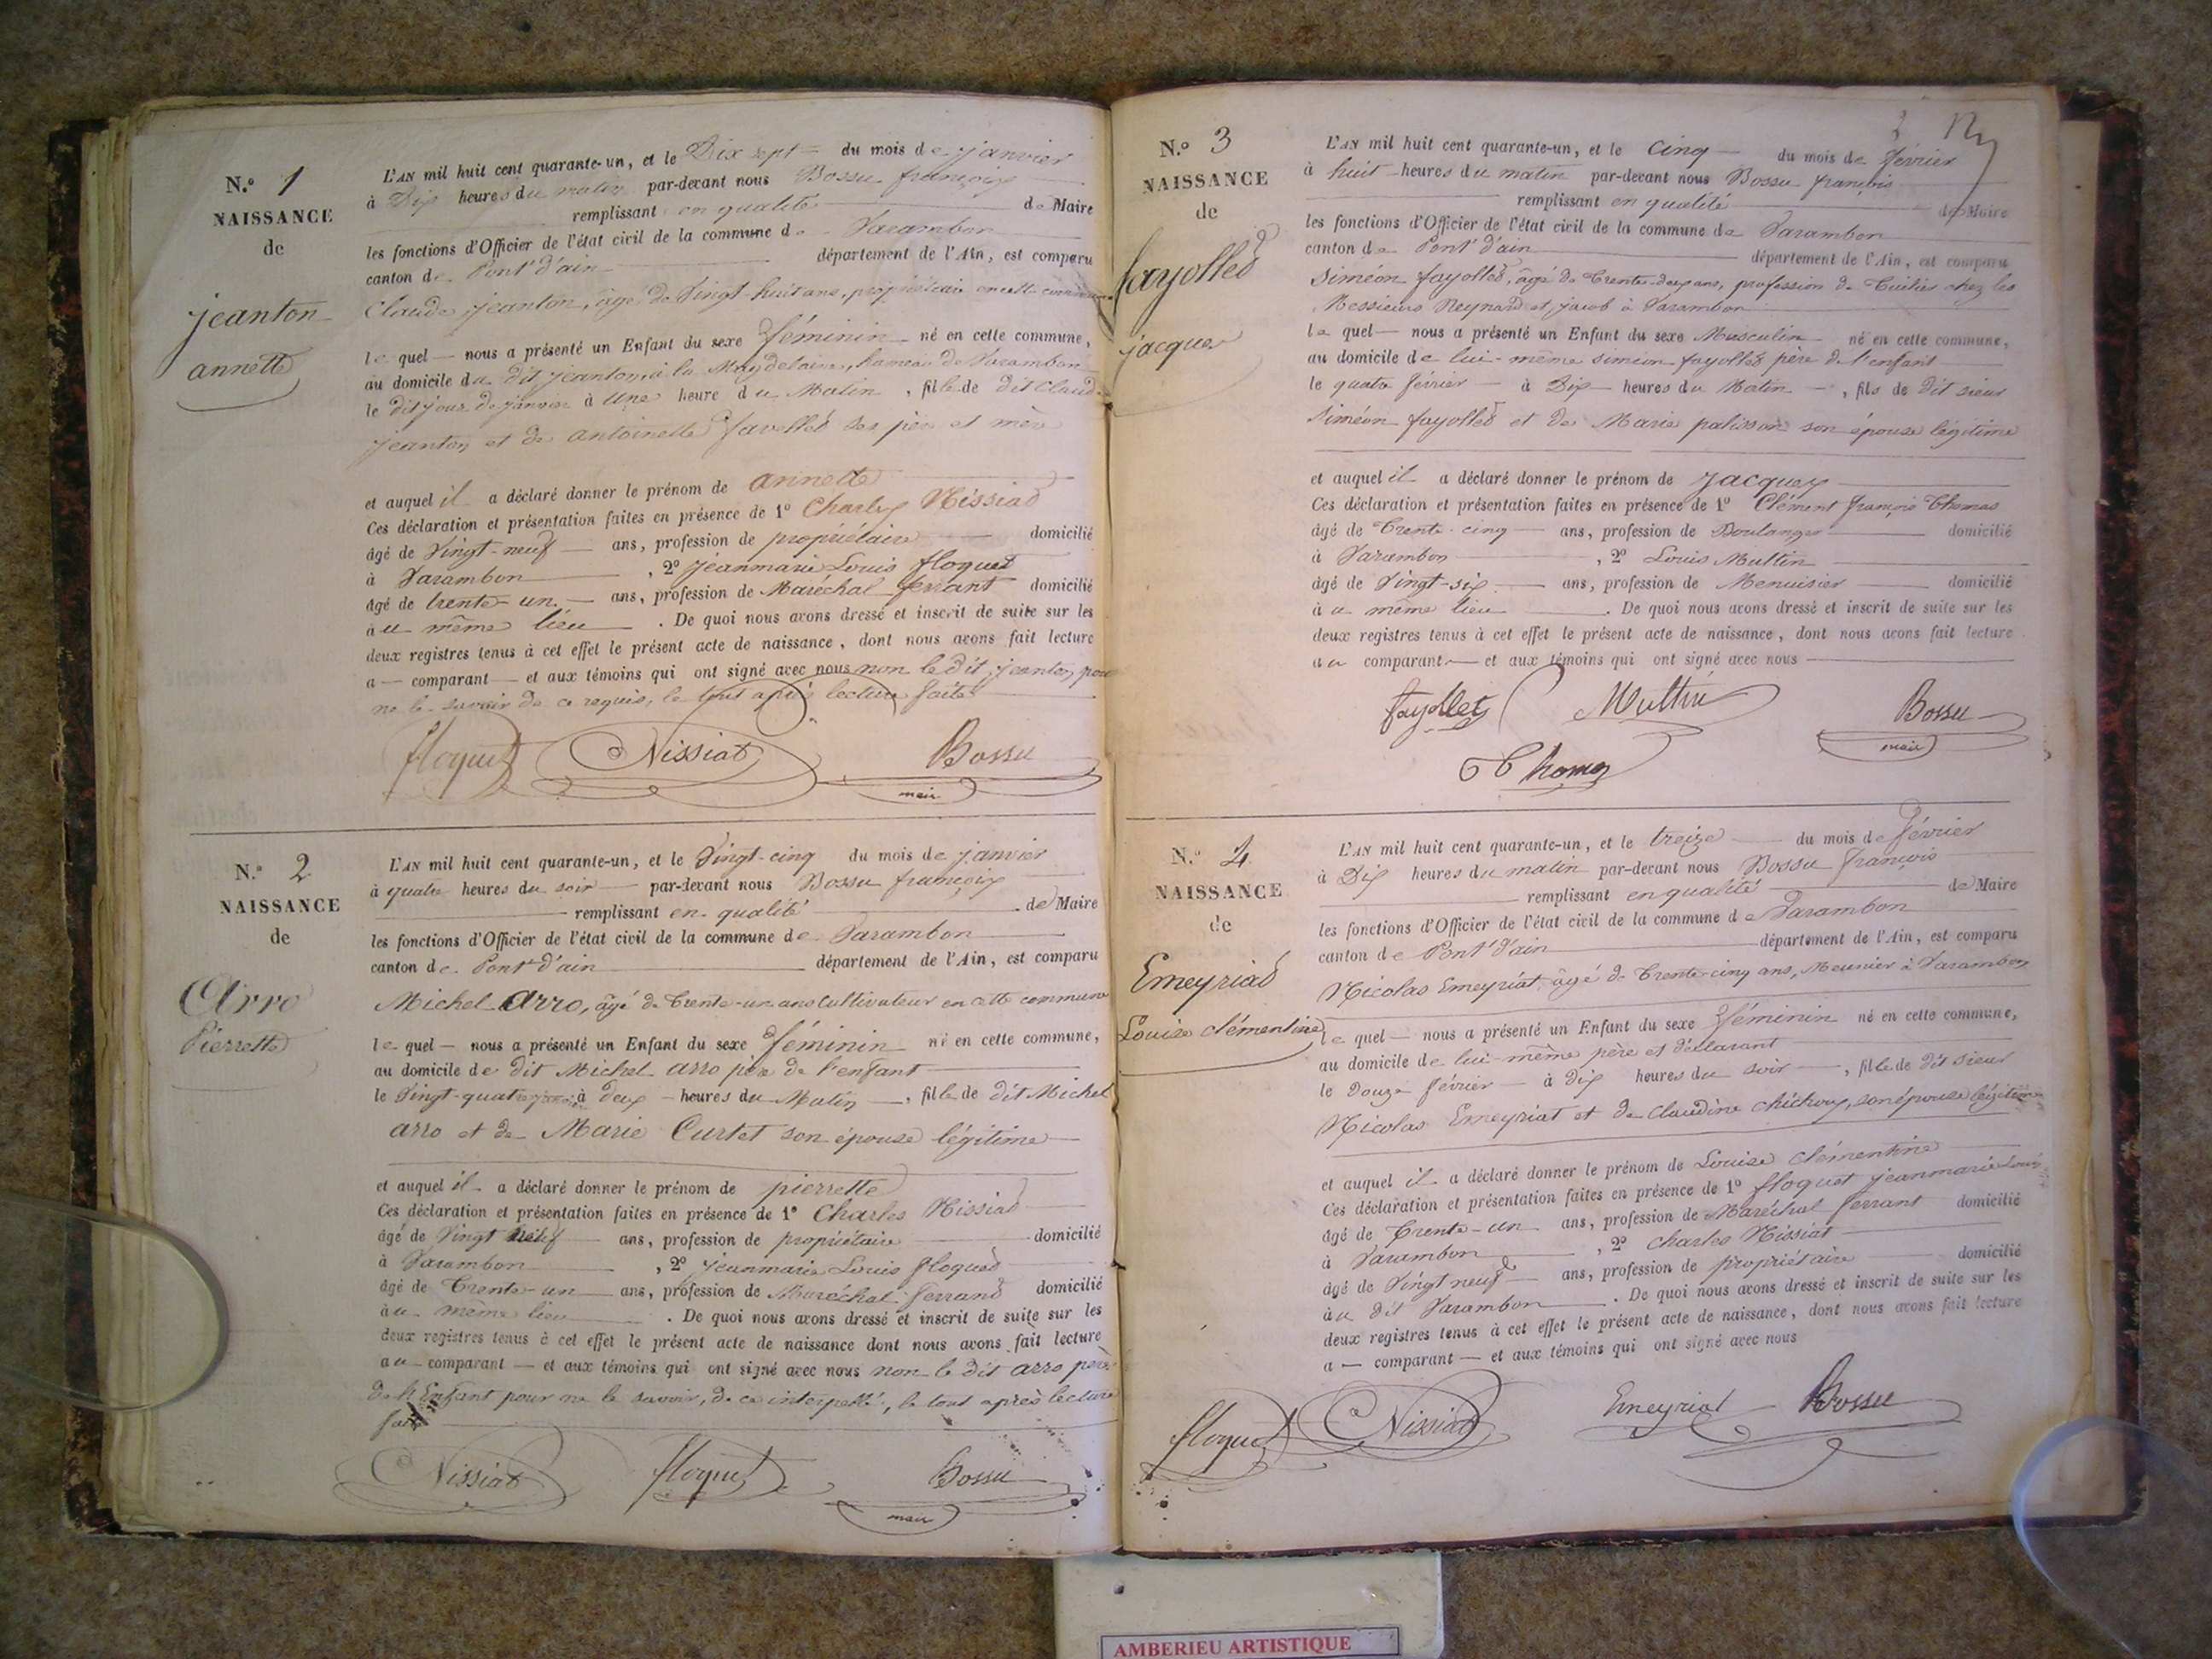 N.º 1
NAISSANCE
de
jeanton
annette
L'AN mil huit cent quarante-un, et le Dix sept du mois de janvier
à Dix heures du matin par-devant nous Bossu françois
remplissant en qualité de Maire
les fonctions d'Officier de l'état civil de la commune de Varambon
canton de Pont d'ain département de l'Ain, est comparu
Claude jeanton, âgé de Vingt-huit ans, propriétaire en cette commune
le quel nous a présenté un Enfant du sexe féminin né en cette commune,
au domicile du dit jeanton, à la Magdelaine, hameau de Varambon
le dit jour de janvier à Une heure du Matin, fille de dit Claude
jeanton et de antoinette ses père et mère
et auquel il a déclaré donner le prénom de annette
Ces déclaration et présentation faites en présence de 1º Charles Nissiat
âgé de Vingt-neuf ans, profession de propriétaire domicilié
à Varambon, 2º jeanmarie Louis floquet
âgé de trente-un ans, profession de Maréchal ferrant domicilié
au même lieu. De quoi nous avons dressé et inscrit de suite sur les
deux registres tenus à cet effet le présent acte de naissance, dont nous avons fait lecture
a comparant et aux témoins qui ont signé avec nous non le dit jeanton pour
ne le savoir de ce requis, le tout après lecture faite
floquet Nissiat Bossu
mair
N.º 2
NAISSANCE
de
Arro
Pierrette
L'AN mil huit cent quarante-un, et le Vingt-cinq du mois de janvier
à quatre heures du soir par-devant nous Bossu françois
remplissant en qualité de Maire
les fonctions d'Officier de l'état civil de la commune de Varambon
canton de Pont d'ain département de l'Ain, est comparu
Michel Arro, âgé de trente-un ans Cultivateur en cette commune
le quel nous a présenté un Enfant du sexe féminin né en cette commune,
au domicile de dit Michel arro père de l'enfant
le Vingt-quatre à deux heures du Matin, fille de dit Michel
arro et de Marie Curtet son épouse légitime
et auquel il a déclaré donner le prénom de pierrette
Ces déclaration et présentation faites en présence de 1º Charles Nissiat
âgé de Vingt neuf ans, profession de propriétaire domicilié
à Varambon, 2º jeanmarie Louis floquet
âgé de trente-un ans, profession de Maréchal ferrant domicilié
au même lieu. De quoi nous avons dressé et inscrit de suite sur les
deux registres tenus à cet effet le présent acte de naissance dont nous avons fait lecture
au comparant et aux témoins qui ont signé avec nous non le dit arro père
de l'Enfant pour ne le savoir, de ce interpellé, le tout après lecture
faite
Nissiat floquet Bossu
mair
N.º 3
NAISSANCE
de
fayollet
jacques
L'AN mil huit cent quarante-un, et le cinq du mois de février
à huit heures du matin par-devant nous Bossu françois
remplissant en qualité de Maire
les fonctions d'Officier de l'état civil de la commune de Varambon
canton de Pont d'ain département de l'Ain, est comparu
Siméon fayollet, âgé de trente-deux ans, profession de Tuilier chez les
Messieurs Reynard et jacob à Varambon
le quel nous a présenté un Enfant du sexe Masculin né en cette commune,
au domicile de lui-même siméon fayollet père de l'enfant
le quatre février à Dix heures du Matin, fils de dit sieur
Siméon fayollet et de Marie palisson son épouse légitime
et auquel il a déclaré donner le prénom de jacques
Ces déclaration et présentation faites en présence de 1º Clément françois Thomas
âgé de trente-cinq ans, profession de Boulanger domicilié
à Varambon, 2º Louis Muttin
âgé de Vingt-six ans, profession de Menuisier domicilié
au même lieu. De quoi nous avons dressé et inscrit de suite sur les
deux registres tenus à cet effet le présent acte de naissance, dont nous avons fait lecture
au comparant et aux témoins qui ont signé avec nous
fayollet Muttin Bossu
mair
Thomas
N.º 4
NAISSANCE
de
Emeyriat
Louise clémentine
L'AN mil huit cent quarante-un, et le treize du mois de février
à Dix heures du matin par-devant nous Bossu françois
remplissant en qualité de Maire
les fonctions d'Officier de l'état civil de la commune de Varambon
canton de Pont d'ain département de l'Ain, est comparu
Nicolas Emeyriat âgé de trente-cinq ans, Meunier à Varambon
le quel nous a présenté un Enfant du sexe féminin né en cette commune,
au domicile de lui-même père et déclarant
le Douze février à dix heures du soir, fille de dit sieur
Nicolas Emeyriat et de Claudine chichoux, son épouse légitime
et auquel il a déclaré donner le prénom de Louise clémentine
Ces déclaration et présentation faites en présence de 1º floquet jeanmarie Louis
âgé de trente-un ans, profession de Maréchal ferrant domicilié
à Varambon, 2º charles Nissiat
âgé de Vingt neuf ans, profession de propriétaire domicilié
au dit Varambon. De quoi nous avons dressé et inscrit de suite sur les
deux registres tenus à cet effet le présent acte de naissance, dont nous avons fait lecture
a comparant et aux témoins qui ont signé avec nous
floquet Nissiat Emeyriat Bossu
AMBERIEU ARTISTIQUE